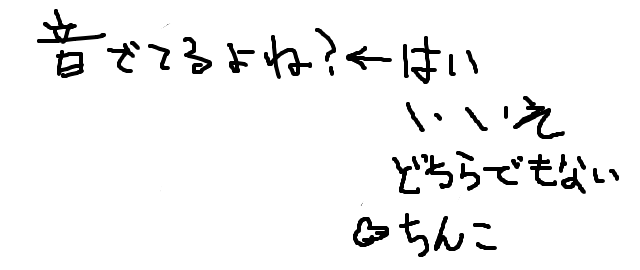 音でてるよね?←はい
いいえ
どちらでもない
ちんこ